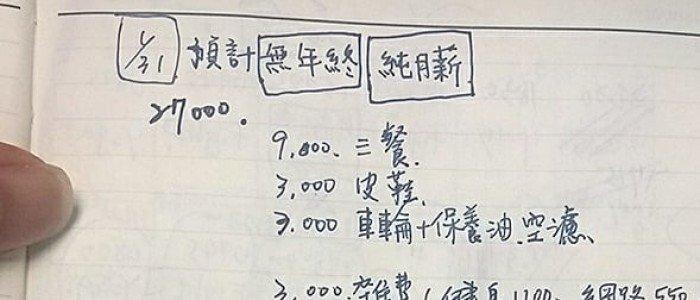 1/31 預計 無年終 純月薪
27000.
9,000. 三餐.
3,000 皮鞋.
3.000 車輪+保養油.空濾、
3,000. 雜費（健身1100、網路550